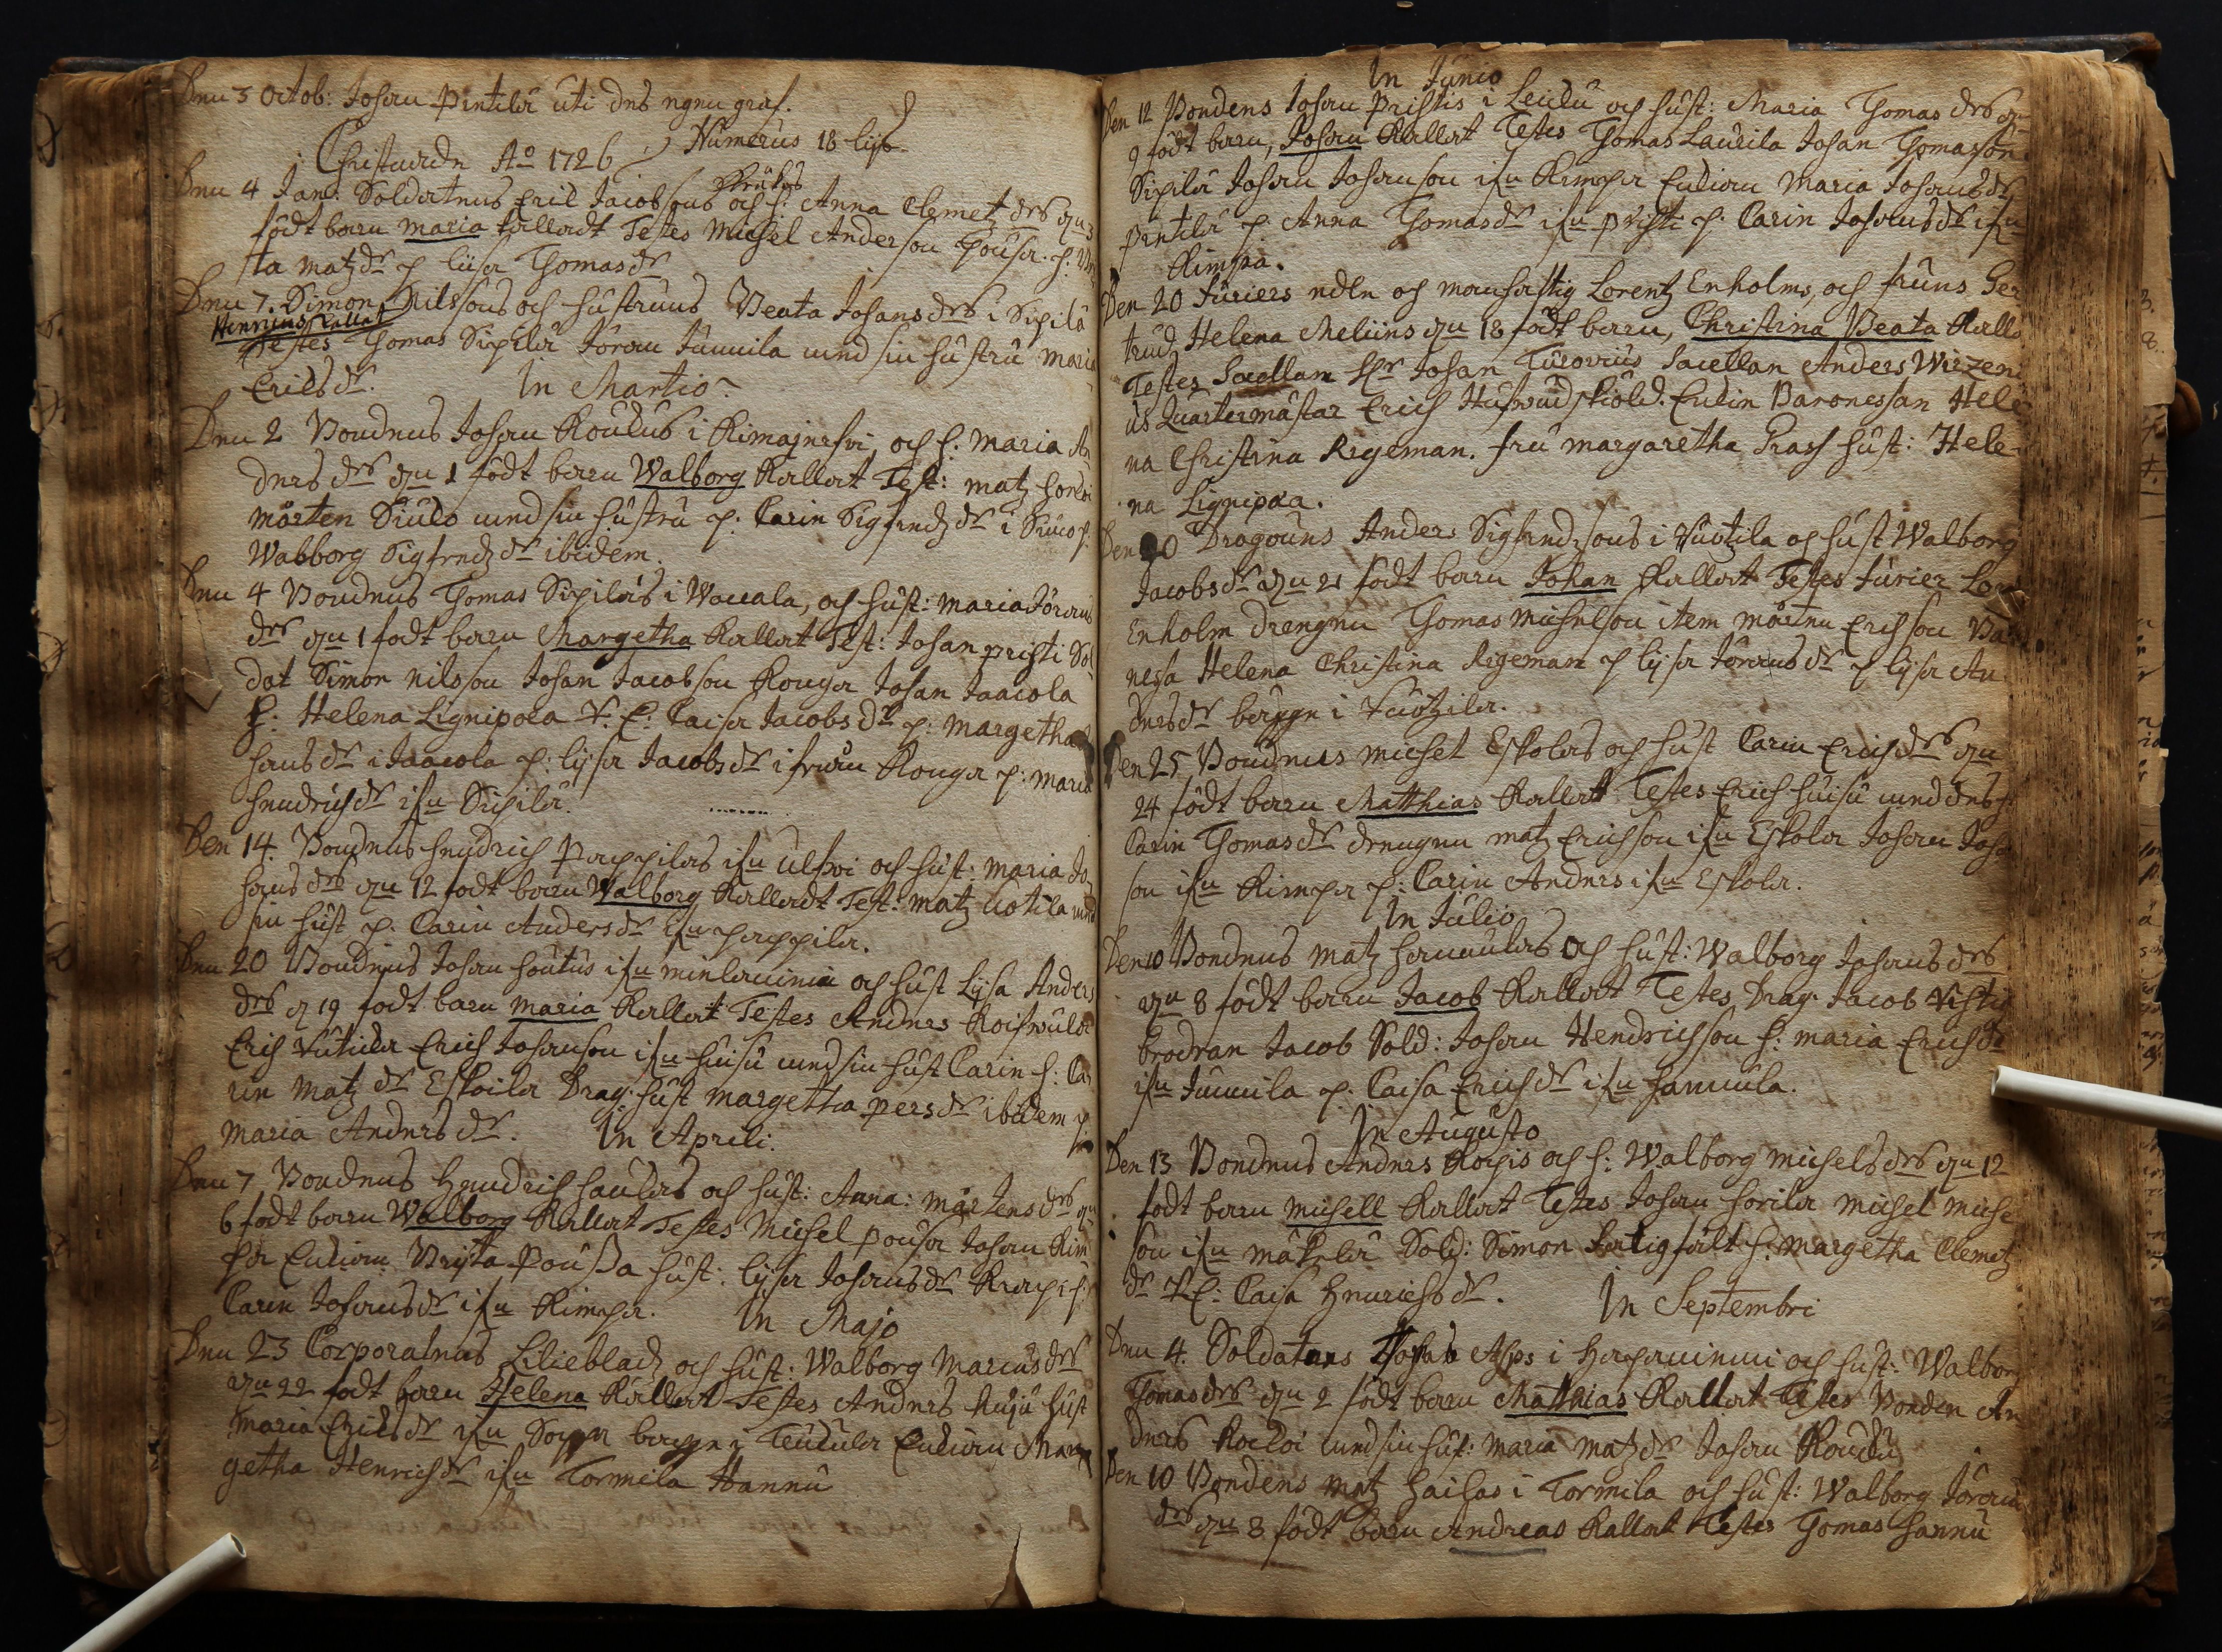 Den 3 Octob: Johan Pentilä uti des egen graf.
Numerus 18 lijk
Christnade Aº 1726
Den 4 Jan: Soldatens Eric Jacobssons och h: Anna Clemetz drs den 3
födt barn Maria kalladt Testes Michel Anderson Pousa. h:
ta Matz dr p. Liisa Thomas dr
Den 7. Simon Nilssons och hustruns Beata Johans drs i Sipilä
Henricus Kallat
Testes Thomas Sipilä Jöran Junnila med sin hustru Maria
Erics dr.
In Martio
Den 2 Bondens Johan Roukus i Kimajerfvi och h: Maria An
ders drs den 1 födt barn Walborg Kallat Test: Matz
Mårten Siuko med sin hustru p. Carin Sigfredz dr i Siuco p.
Wabborg Sigfredz dr ibidem.
Den 4 Bondens Thomas Sipiläs i Waccala, och hust: Maria Jörans
drs den 1 födt barn Margetha Kallat Test: Johan Pristi Sol
dat Simon Nilsson Johan Jacobson Rouga Johan Jaacola
H: Helena Lignipæa V. E: Caisa Jacobs dr p: Margetha
hans dr i Jaacola p: Lijsa Jacobs dr ifrån Rouga p: Maria
Hendrichs dr ifrn Sipilä.
Den 14. Bondens Hendrich Pappilas ifrn och hust: Maria Jo
hans drs den 12 födt barn Walborg Kalladt Test: Matz Uotila med
sin hust p. Carin Anders dr ifrn Pappila.
Den 20 Bondens Johan Houtus ifrn och hust Lijsa Anders
drs d 19 födt barn Maria Kallat Testes Anders
Erich Erich Johanson ifrn Huisu med sin hust Carin h: Ca
rin Matz dr Eskoila Drag: hust Margetha Pers dr ibidem p.
Maria Anders dr.
In Aprili.
Den 7 Bondens Hendrich och hust: Anna: Mårtens drs den
6 födt barn Walborg Kallat Testes Michel Pousa Johan Kim
pa Eudian Brijta Pousa hust: Lijsa Johans dr
Carin Johans dr ifrn Kimpa.
In Majo
Den 23 Corporalens Lilieblad och hust: Walborg Marcus drs
den 22 födt barn Helena Kallat Testes Anders hust
Maria Erics dr ifrn bägge i Teukula Eudian Mar
getha Henrichs dr ifrn Tormila Hannu
In Junio
Den 12 Bondens Johan Pristis i Leiku och hust: Maria Thomas drs den
9 födt barn, Johan Kallat Testes Thomas Laurila Johan Thomasson
Sipilä Johan Johanson ifrn Kimpa Eudian Maria Johans dr
Pentilä p. Anna Thomas dr ifrn Pristi p. Carin Johans dr ifrn
Kimpa.
Den 20 Furiers edle och manhaftig Lorentz Enholms, och fruns Ger
trud Helena Meliins den 18 födt barn, Christina Beata Kallat
Testes Sacellan Hr Johan Sacellan Anders Wirzeni
us Quartermästar Erich Hufwudskiöld. Eudin Baronessan Hele
na Christina Rigeman. fru Margaretha Prass hust: Hele
na Lignipæa.
Den 20 Dragouns Anders Sigfredzsons i och hust Walborg
Jacobs dr den 21 födt barn Johan Kallat Testes Furier Lor
Enholm Drengen Thomas Michelson item Mårten Erichson Ba
nessa Helena Christina Rigeman p Lijsa Jörans dr p Lijsa An
ders dr bägge i
Den 25 Bondens Michel Eskolas och hust Carin Erichs drs den
24 födt barn Matthias Kallat Testes Erich Huisu med des h.
Carin Thomas dr drengen Matz Erichson ifrn Eskola Johan Joh
son ifrn Kimpa p: Carin Anders ifrn Eskola.
In Julio
Den 10 Bondens Matz Hannulas och hust: Walborg Johans drs
den 8 födt barn Jacob Kallat Testes Drag: Jacob
brodran Jacob Sold: Johan Hendrichsson h: Maria Erichs dr
ifrn Junnila p. Caisa Erichs dr ifrn Hannula.
In Augusto
Den 13 Bondens Anders och h: Walborg Michels drs den 12
födt barn Michell Kallat Testes Johan Michel Miche
son ifrn Mäkelä Sold: Simon h: Margetha Clemetz
dr V E: Caisa Henrichs dr.
In Septembri
Den 4. Soldatens Asps i och hust: Walborg
Thomas drs den 2 födt barn Matthias Kallat Testes Bonden An
ders med sin hust: Maria Matz dr Johan Roucku
Den 10 Bondens Matz i Tormila och hust: Walborg Jörans
drs den 8 födt barn Andreas Kallat Testes Thomas Hannu